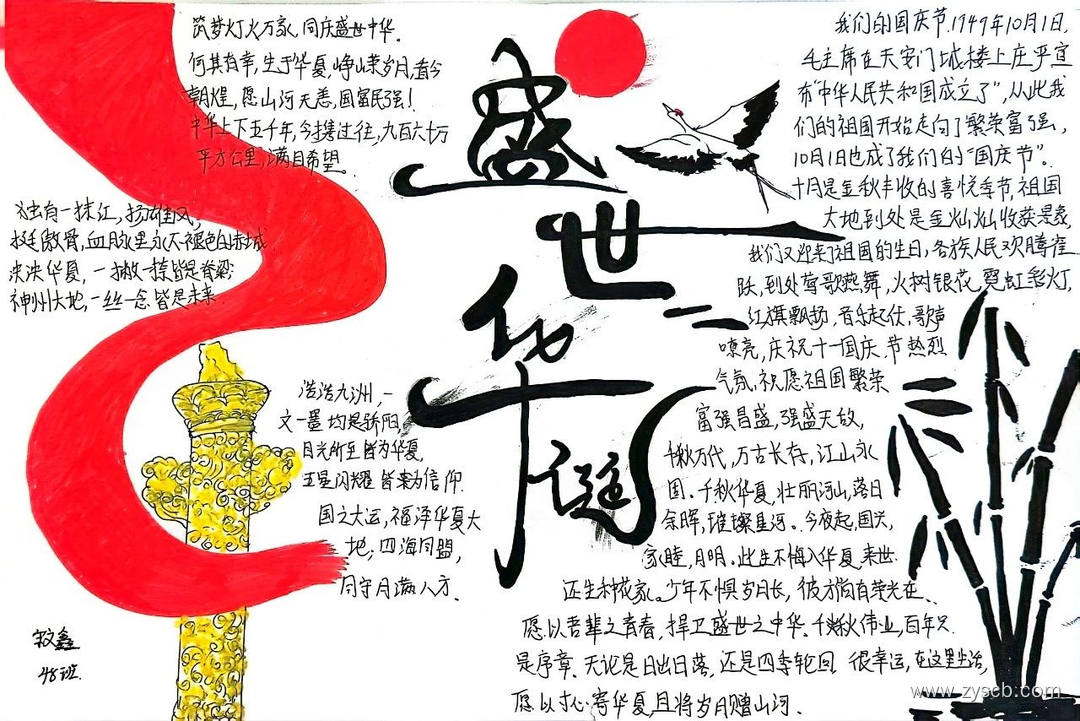 筑梦灯火万家,同庆盛世中华.
何其有幸,生于华夏,峥嵘岁月,看今
朝煌,愿山河无恙,国富民强!
中华上下五千年,今携过往,九百六十万
平方公里,满目希望.
独有一抹红,扬雄风,
挺傲骨,血脉里永不褪色的赤城
泱泱华夏,一撇一捺皆是脊梁;
神州大地,一丝一念皆是未来.
浩浩九洲,一
文一墨均是骄阳
目光所至皆为华夏,
五星闪耀皆为信仰.
国之大运,福泽华夏大
地;四海同盟,
同守月满人方.
盛世华诞
我们的国庆节.1949年10月1日,
毛主席在天安门城楼上庄严宣
布"中华人民共和国成立了",从此我
们的祖国开始走向了繁荣富强,
10月1日也成了我们的"国庆节".
十月是金秋丰收的喜悦季节,祖国
大地到处是金灿灿收获景象,
我们又迎来了祖国的生日,各族人民欢腾雀
跃,到处莺歌燕舞,火树银花,霓虹彩灯,
红旗飘扬,音乐起伏,歌声
嘹亮,庆祝十一国庆节热烈
气氛.祝愿祖国繁荣
富强昌盛,强盛无敌,
千秋万代,万古长存,江山永
固.千秋华夏,壮丽河山,落日
余晖,璀璨星河.今夜起,国兴,
家睦,月明.此生不悔入华夏,来世
还生种花家.少年不惧岁月长,彼方尚有荣光在.
愿以吾辈之青春,捍卫盛世之中华.千秋伟业,百年只
是序章.无论是日出日落,还是四季轮回 很幸运,在这里生活,
愿以寸心寄华夏,且将岁月赠山河.
鑫
48班.
www.zyscb.com